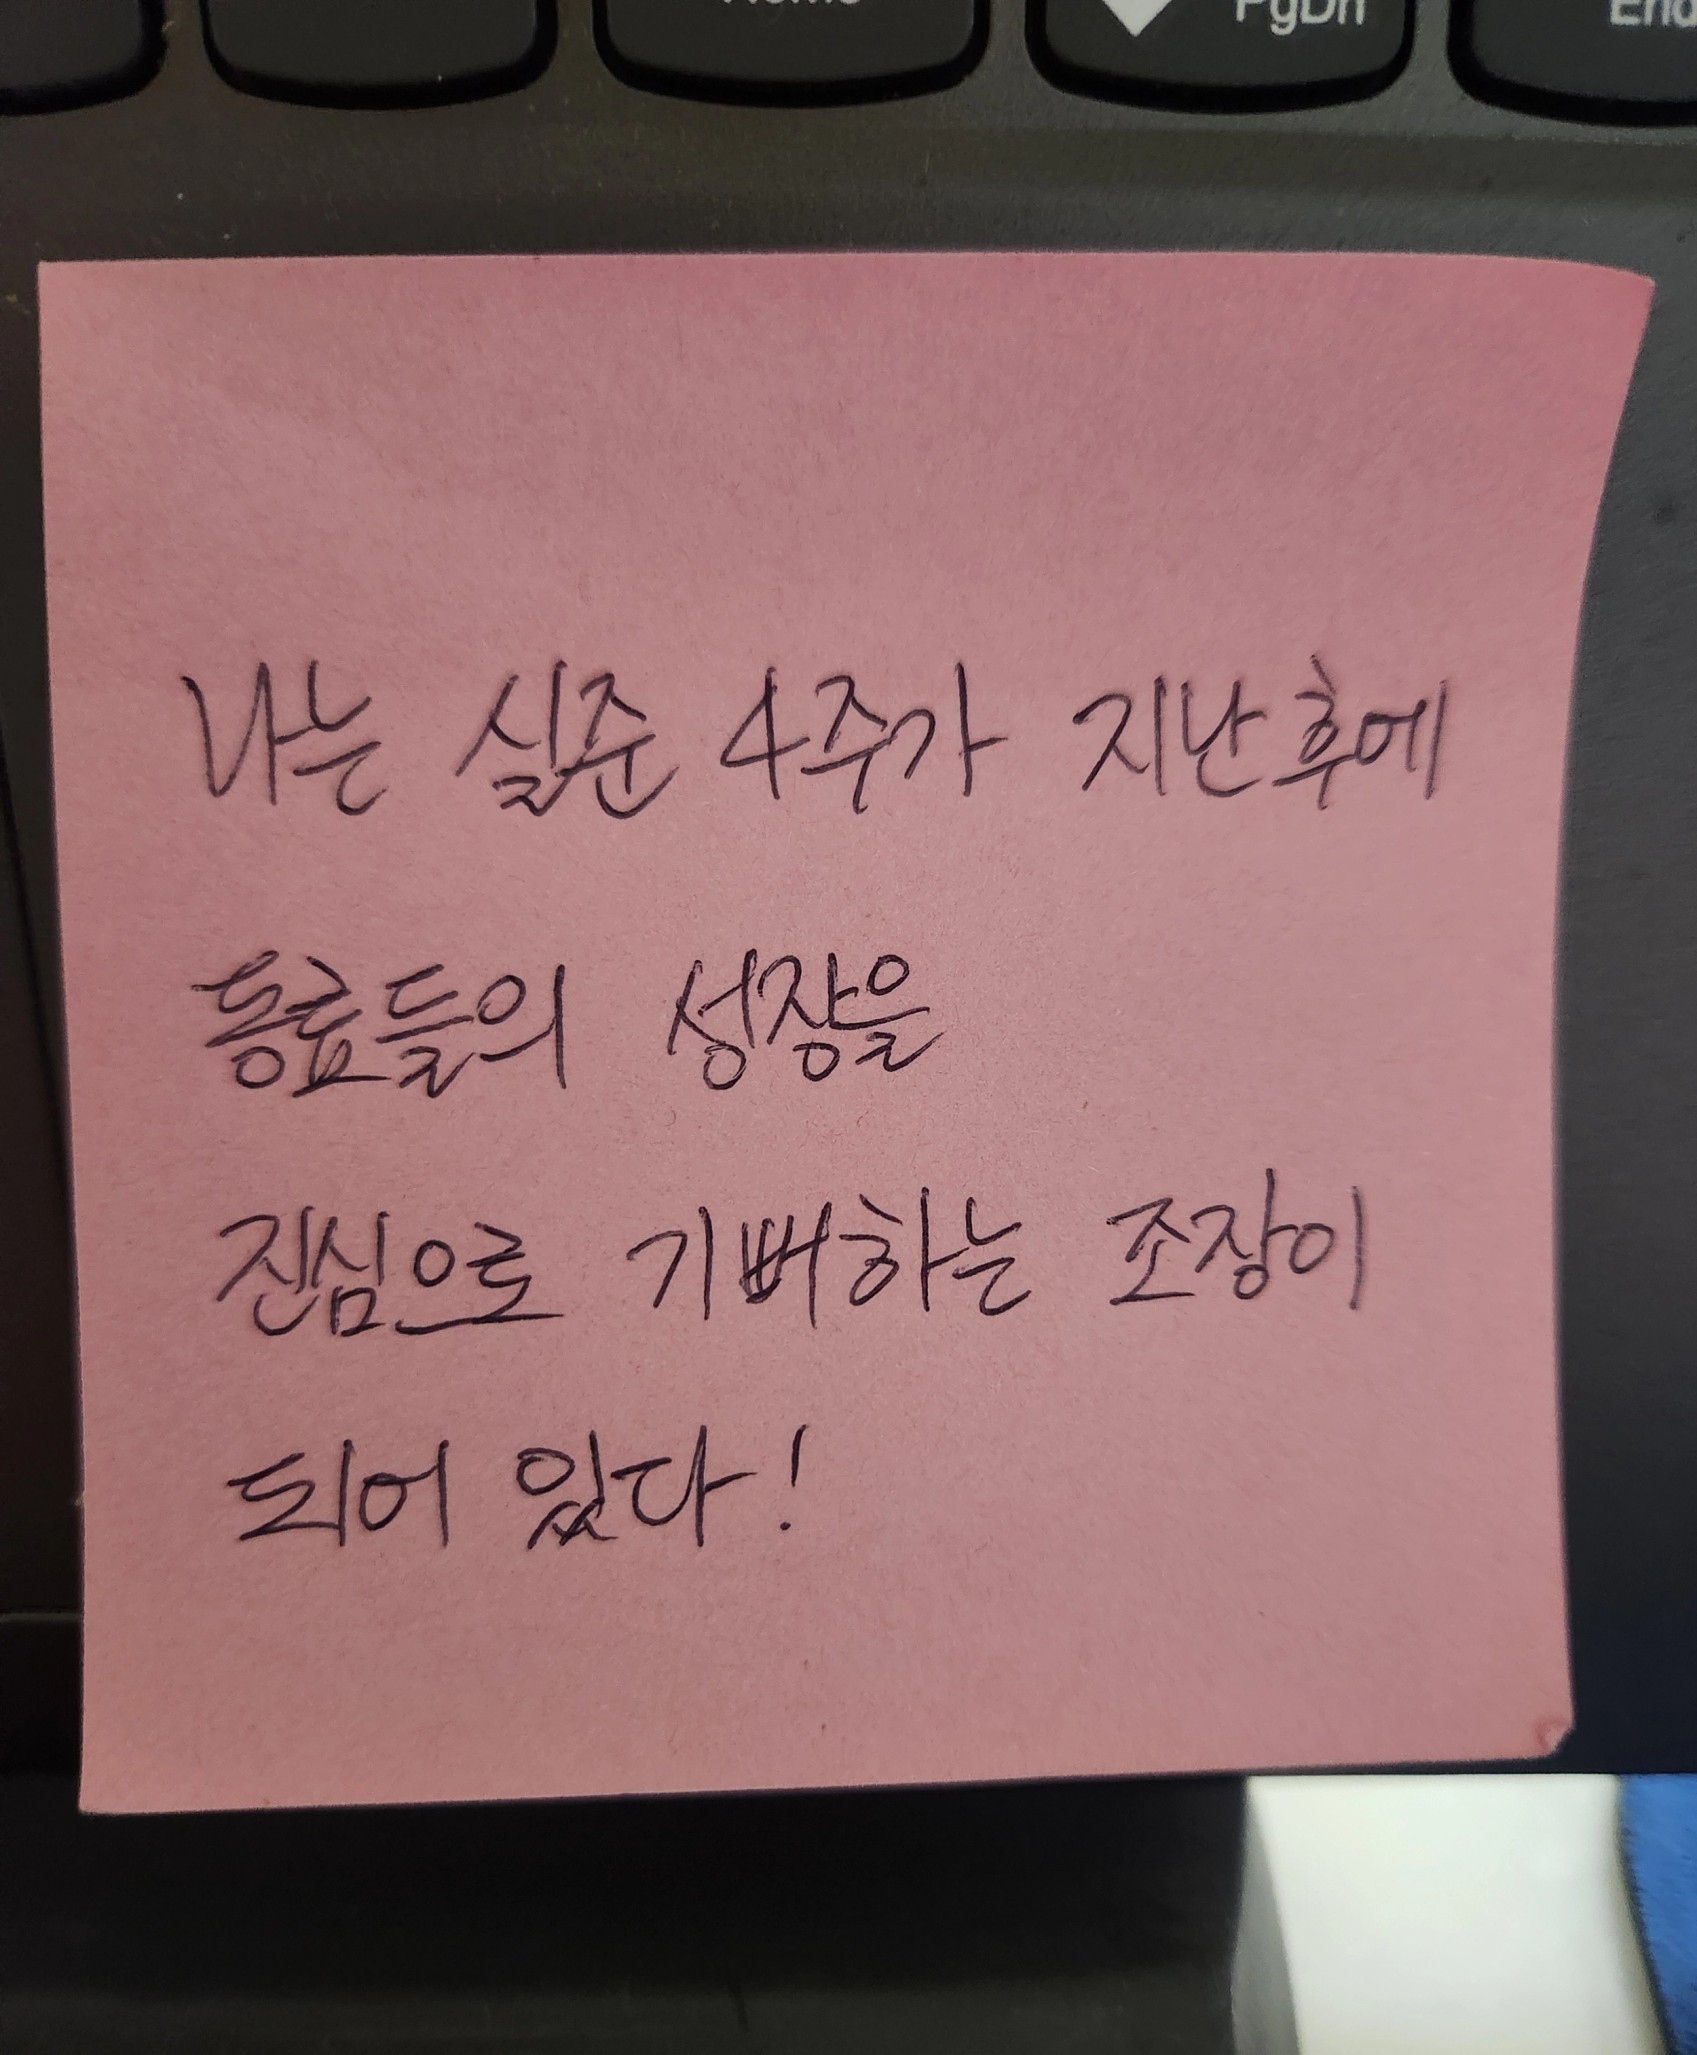 Home
PgDn
End
나는 실준 4주가 지난후에
동료들의 성장을
진심으로 기뻐하는 조장이
되어 있다!